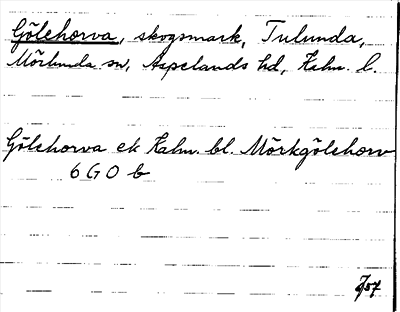 Gölehorva, skogsmark, Tulunda,
Mörlunda sn, Aspelands hd, Kalm. l.
Gölehorva ek Kalm. bl. Mörkgölehorv
6 G O b